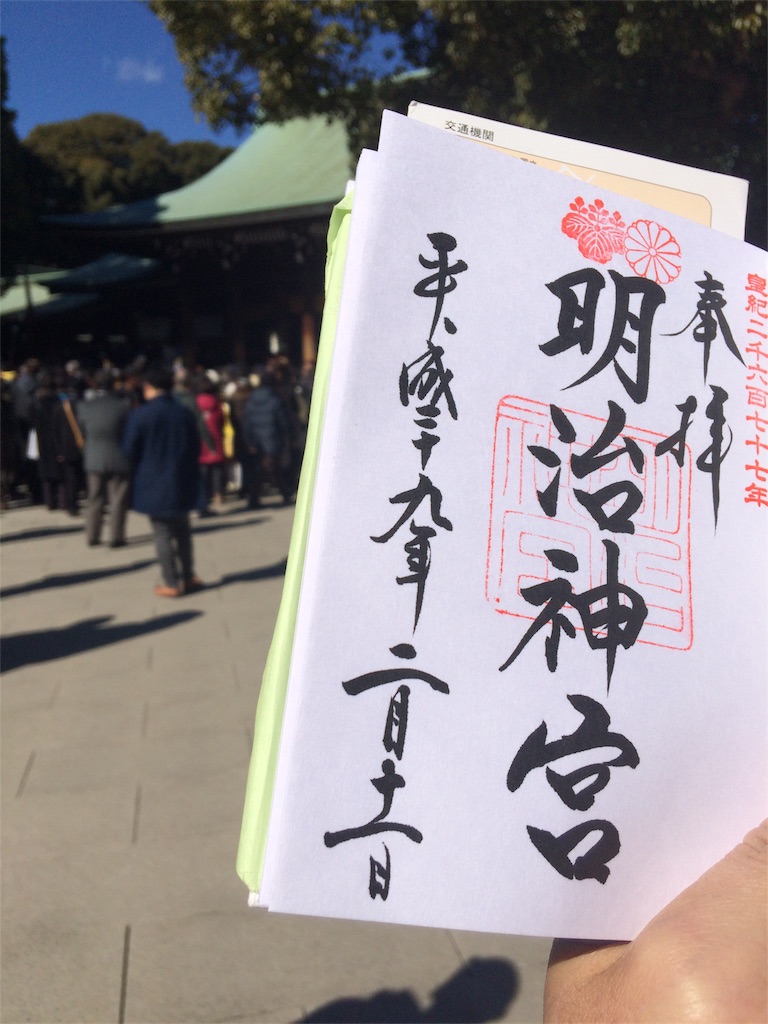 交通機関
皇紀二千六百七十七年
奉拝
明治神宮
平成二十九年二月十一日